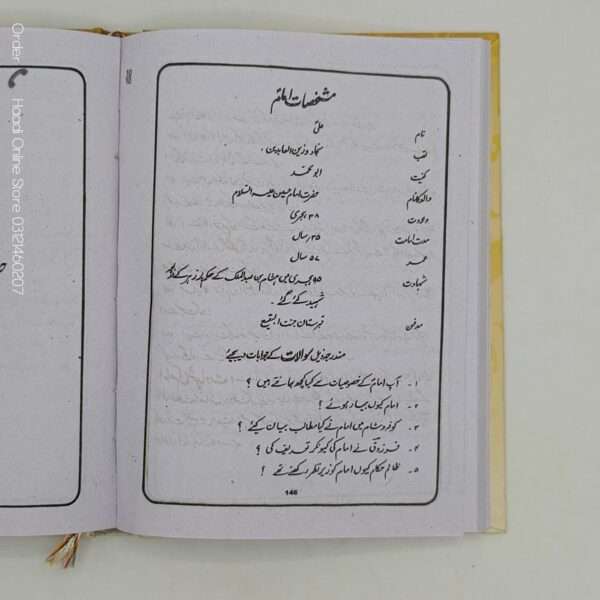 مشخصات امامؑ
نام علیؑ
لقب سجاد وزین العابدین .
کنیت ابو محمد
والد کا نام حضرت امام حسین علیہ السلام
ولادت ۳۸ ہجری
مدت امامت ۳۵ سال
عمر ۵۷ سال
شہادت ۹۵ ہجری میں ہشام بن عبدالملک کے حکم اور زہر کے ذریعہ
شہید کئے گئے .
مدفن قبرستان جنت البقیع
مندرجہ ذیل سوالات کے جوابات دیجئے
۱ - آپ امامؑ کے خصوصیات سے کیا کچھ جانتے ہیں ؟
۲ - امام کیوں بیمار ہوئے ؟
۳ - کوفہ و شام میں امام نے کیا مطالب بیان کیئے ؟
۴ - فرزدق نے امام کی کیونکر تعریف کی ؟
۵ - ظالم حکام کیوں امام کو زیر نظر رکھتے تھے ؟
146
Order Haadi Online Store 03121460207